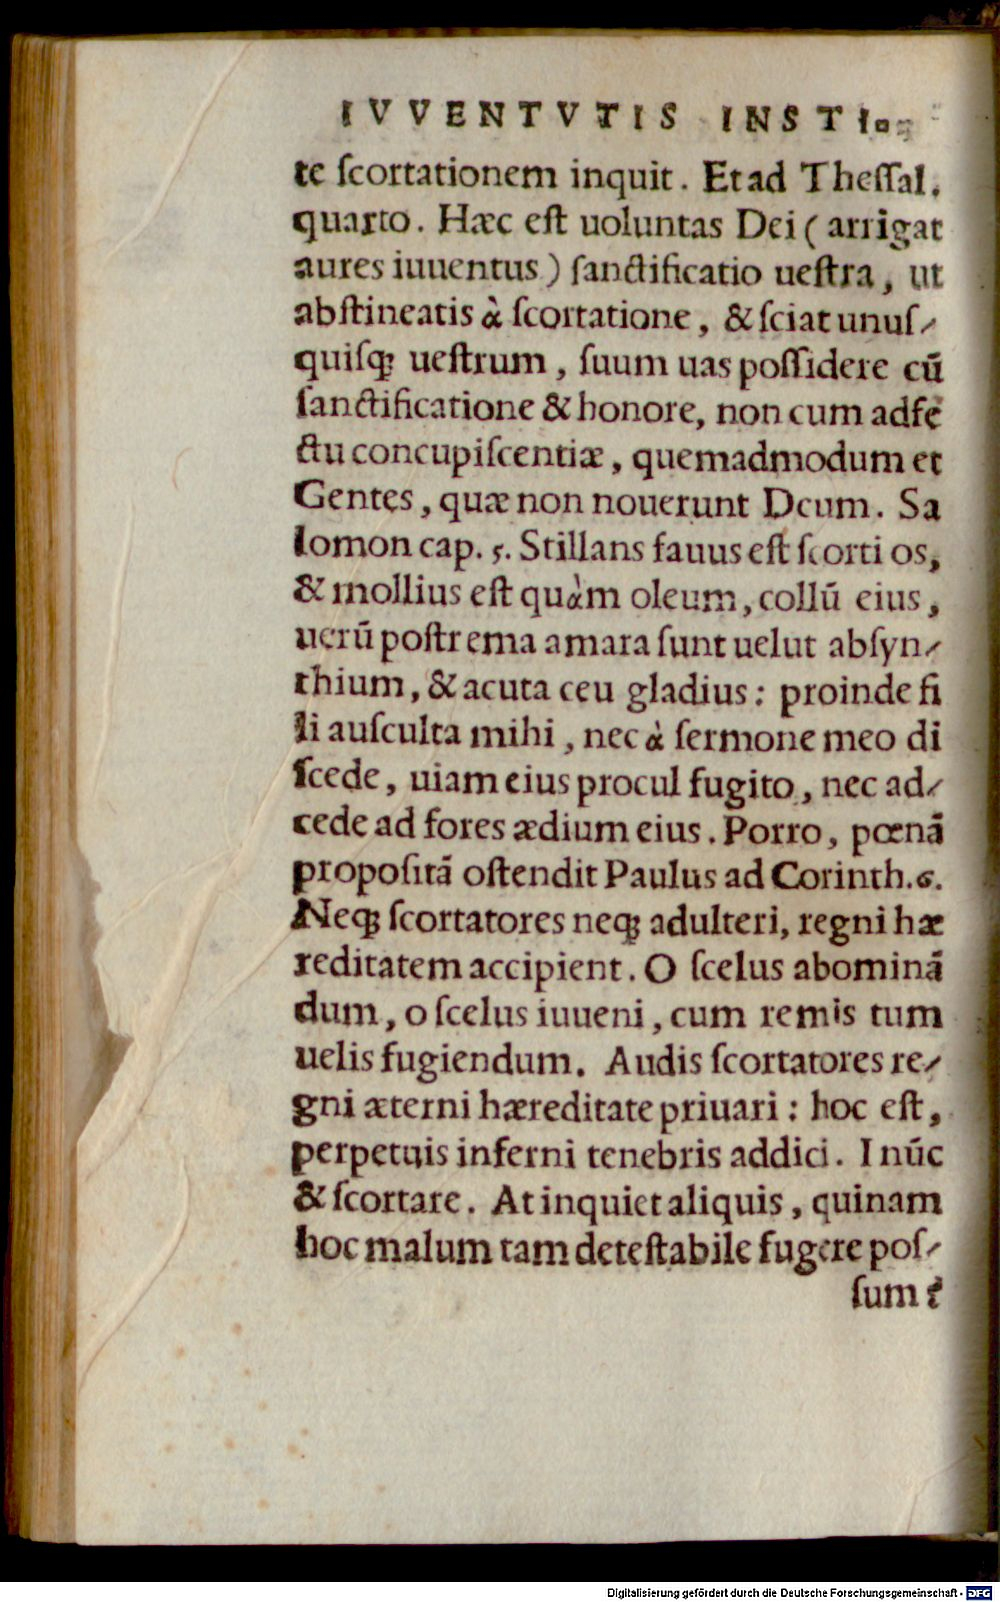 IVVENTVTIS INSTI-
te ſcortationem inquit. Et ad Theſſal.
quarto. Hæc eſt uoluntas Dei ( arrigat
aures iuuentus ) ſanctificatio ueſtra, ut
abſtineatis à ſcortatione, & ſciat unuſ-
quiſq; ueſtrum, ſuum uas poſſidere cū
ſanctificatione & honore, non cum adfe
ctu concupiſcentiæ, quemadmodum et
Gentes, quæ non nouerunt Deum. Sa
lomon cap. 5. Stillans fauus eſt ſcorti os,
& mollius eſt quàm oleum, collū eius,
uerū poſtrema amara ſunt uelut abſyn-
thium, & acuta ceu gladius: proinde fi
li auſculta mihi, nec à ſermone meo di
ſcede, uiam eius procul fugito, nec ad-
cede ad fores ædium eius. Porro, pœnā
propoſitā oſtendit Paulus ad Corinth.6.
Neq; ſcortatores neq; adulteri, regni hæ
reditatem accipient. O ſcelus abominā
dum, o ſcelus iuueni, cum remis tum
uelis fugiendum. Audis ſcortatores re-
gni æterni hæreditate priuari: hoc eſt,
perpetuis inferni tenebris addici. I nūc
& ſcortare. At inquiet aliquis, quinam
hoc malum tam deteſtabile fugere poſ-
ſum?
Digitalisierung gefördert durch die Deutsche Forschungsgemeinschaft - DFG